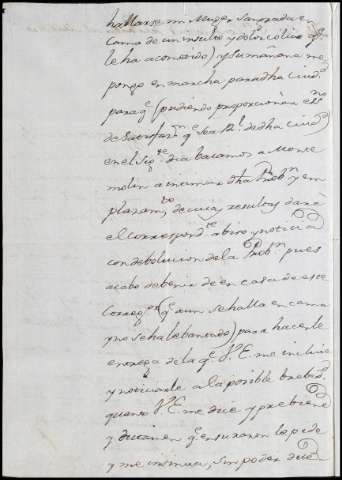 hallarse mi Muger sangrada en
cama de un insulto y dolor colico q.e
le ha acometido) y su mañana me
pongo en marcha para dha Ciud.d
para q.e (pudiendo proporcionar el
de q.e sea R.l de dha Ciud.)
en el Sig.te dia bacamos a Monte
molin a intimar dha Prob.n y em
plazam.to de cuias resultas daré
el correspond.te abiso y noticia
con debolucion de la Prob.n pues
acabo de benir de en casa de este
Correg.or (q.e aun se halla en cama
y no se ha lebantado) para hacerle
entrega de la q.e V.E. me incluie
y noticiarle a la posible brebed.d
quanto V.E. me dice y prebiene
y dictamen q.e en su razon le pide
y me insinua, sin poder dice